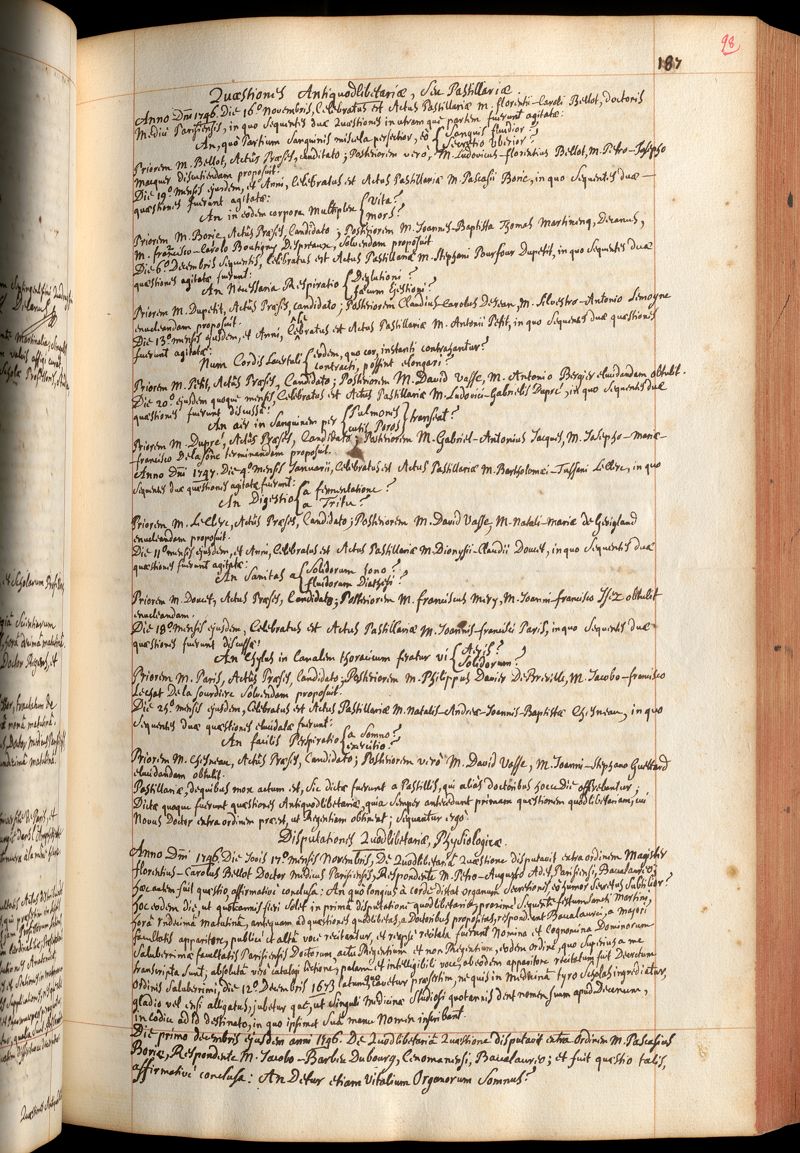 98
187
Quæstiones Antiquodlibetariæ, Seu Pastillariæ.
Anno Dni 1746. Die 16.º Novembris, Celebratus est Actus Pastillariæ M. florentii-Caroli Bellot, doctoris
Medici Parisiensis, in quo Sequentes duæ Quæstiones in utramque partem fuerunt agitatæ:
An, quo Partium Sanguinis miscela perfectior, eò { Sanguis fluidior?
Secretio Uberior?
Priorem M. Bellot, Actûs Præses, Candidato; Posteriorem verò, M. Ludovicus-florentius Bellot, M. Petro-Josepho
Macquer discutiendam proposuit.
Die 19.º mensis ejusdem, et Anni, Celebratus est Actus Pastillariæ M. Pascasii Borie, in quo Sequentes duæ
quæstiones fuerunt agitatæ:
An in eodem corpore multiplex { Vita?
Mors?
Priorem M. Borie, Actûs Præses, Candidato; Posteriorem M. Joannes-Baptista Thomas Martinenq, Decanus,
M. francisco-Carolo Boutigny Despreaux, Solvendam proposuit
Die 6.º Decembris Sequentis, Celebratus est Actus Pastillariæ M. Stephani Pourfour Dupetit, in quo Sequentes duæ
quæstiones agitatæ fuerunt:
An Necessaria Respiratio { Deglutioni?
fæcum Egestioni?
Priorem M. Dupetit, Actûs Præses, candidato; Posteriorem Claudius-Carolus DeJean, M. Silvestro-Antonio Lemoyne
enucleandam proposuit.
Die 13.º mensis ejusdem, et Anni, Celebratus est Actus Pastillariæ M. Antonii Petit, in quo Sequentes duæ quæstiones
fuerunt agitatæ:
Num Cordis Lacertuli { eodem, quo cor, instanti contrahantur?
contracti, possint elongari?
Priorem M. Petit, Actûs Præses, Candidato; Posteriorem M. David Vasse, M. Antonio Bergier elucidandam obtulit.
Die 20.º ejusdem quoque mensis, Celebratus est Actus Pastillariæ M. Ludovici-Gabrielis Dupré, in quo Sequentes duæ
quæstiones fuerunt discussæ:
An aer in Sanguinem per { Pulmones
cutis Poros } transeat?
Priorem M. Dupré, Actûs Præses, Candidato; Posteriorem M. Gabriel-Antonius Jacques, M. Josepho-Maria-
francisco Delasone terminandam proposuit.
Anno Dni 1747. Die 4.º mensis Januarii, Celebratus est Actus Pastillariæ M. Bartholomæi-Tussani Leclerc, in quo
Sequentes duæ quæstiones agitatæ fuerunt:
An Digestio { a fermentatione?
a Tritu?
Priorem M. LeClerc, Actûs Præses, Candidato; Posteriorem M. David Vasse, M. Natali-Mariæ de Gevigland
enucleandam proposuit.
Die 11.º mensis ejusdem, et Anni, Celebratus est Actus Pastillariæ M. Dionysii-Claudii Doucet, in quo Sequentes duæ
quæstiones fuerunt agitatæ:
An Sanitas a { Solidorum tono?
fluidorum Diathesi?
Priorem M. Doucet, Actus Præses, Candidato; Posteriorem M. franciscus Mery, M. Joanni-francisco Isez obtulit
enucleandam.
Die 18.º mensis ejusdem, Celebratus est Actus Pastillariæ M. Joannis-francisci Paris, in quo Sequentes duæ
quæstiones fuerunt discussæ:
An Chylus in Canalem thoracicum feratur vi { Aeris?
Solidorum?
Priorem M. Paris, Actûs Præses, Candidato; Posteriorem M. Philippus Danier DeBreville, M. Jacobo-francisco
Lechat De la Sourdiere Solvendam proposuit.
Die 25.º mensis ejusdem, Celebratus est Actus Pastillariæ M. Natalis-Andreæ-Joannis-Baptistæ Chesneau, in quo
Sequentes duæ quæstiones elucidatæ fuerunt:
An facilis Perspiratio { a Somno?
exercitio?
Priorem M. Chesneau, Actûs Præses, Candidato; Posteriorem verò M. David Vasse, M. Joanni-Stephano Guettard
elucidandam obtulit.
Pastillariæ, de quibus mox actum est, Sic dictæ fuerunt a Pastillis, qui aliàs doctoribus hocce Die offerebantur;
Dictæ quoque fuerunt quæstiones Antiquodlibetariæ, quia Semper antecedunt primam quæstionem quodlibetariam, cui
Novus Doctor extra ordinem præest, ut Regentiam obtineat; Sequuntur ergo
Disputationes Quodlibetariæ, Physiologicæ.
Anno Dni 1746. Die Jovis 17.º mensis Novembris, De Quodlibetariâ Quæstione disputavit extra ordinem Magister
florentius-Carolus Bellot Doctor Medicus Parisiensis, Respondente M. Petro-Augusto Adet, Parisiensi, Baccalaureo;
hæc autem fuit quæstio affirmativè conclusa: An quo longius à corde distat organum Secretionis, eò humor Secretus Subtilior?
hoc eodem die, ut quotannis fieri Solet in primâ disputatione quodlibetariâ, proximè Sequente festum Sancti Martini,
horâ Undecimâ matutinâ, antequam ad quæstiones quodlibetas, a Doctoribus propositas, respondeant Baccalaurei, a majori
facultatis apparitore, publicè et altâ voce recitantur, et reipsâ recitata fuerunt Nomina et Cognomina Dominorum
Saluberrimæ facultatis Parisiensis Doctorum, actu Regentium et non Regentium, eodem ordine, quo Superius a me
transcripta Sunt; absolutâ verò catalogi lectione, palam et intelligibili voce, ab eodem apparitore recitatum fuit Decretum
Ordinis Saluberrimi, Die 12.ª Decembris 1673 latum. Cavetur præsertim, ne quis in Medicinâ tyro Scholas ingrediatur,
gladio vel ensi alligatus, jubetur que, ut Singuli Medicinæ Studiosi quotannis dent nomen suum apud Decanum,
in Codice ad id destinato, in quo ipsimet Suâ manu Nomen inscribant.
Die primo decembris ejusdem anni 1746. De Quodlibetariâ Quæstione disputavit extra ordinem M. Pascasius
Borie, Respondente M. Jacobo-Barbeu Dubourg, Cenomanensi, Baccalaureo; et fuit quæstio talis,
affirmativè conclusa: An Detur etiam Vitalium Organorum Somnus?